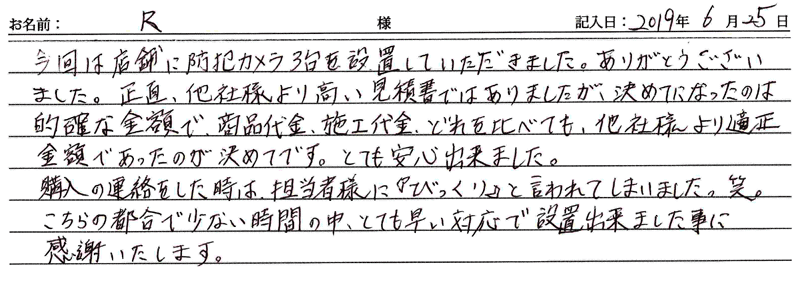 お名前： R 様 記入日：2019年 6月25日
今回は店舗に防犯カメラ3台を設置していただきました。ありがとうござい
ました。正直、他社様より高い見積書ではありましたが、決めてになったのは
的確な金額で、商品代金、施工代金、どれを比べても、他社様より適正
金額であったのが決めてです。とても安心出来ました。
購入の連絡をした時は、担当者様に『びっくり』と言われてしまいました。笑。
こちらの都合で少ない時間の中、とても早い対応で設置出来ました事に
感謝いたします。